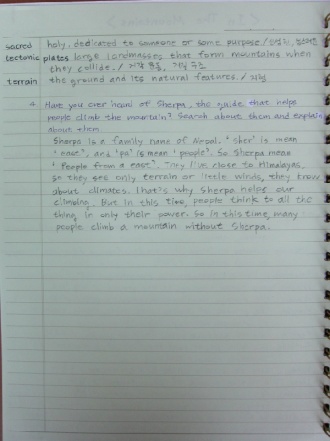 sacred holy, dedicated to someone or some purpose /
tectonic plates large landmasses that form mountains when
they collide. /
terrain the ground and its natural features. / 지형
4 Have you ever heard of Sherpa, the guide that helps
people climb the mountain? Search about them and explain
about them
Sherpa is a family name of Nepal. 'sher' is mean
'east', and 'pa' is mean 'people'. So Sherpa mean
'People from a east'. They live close to Himalayas,
so they see only terrain or little winds, they know
about climates. That's why Sherpa helps our
climbing. But in this time, people think to all the
thing in only their power. So in this time, many
people climb a mountain without Sherpa.